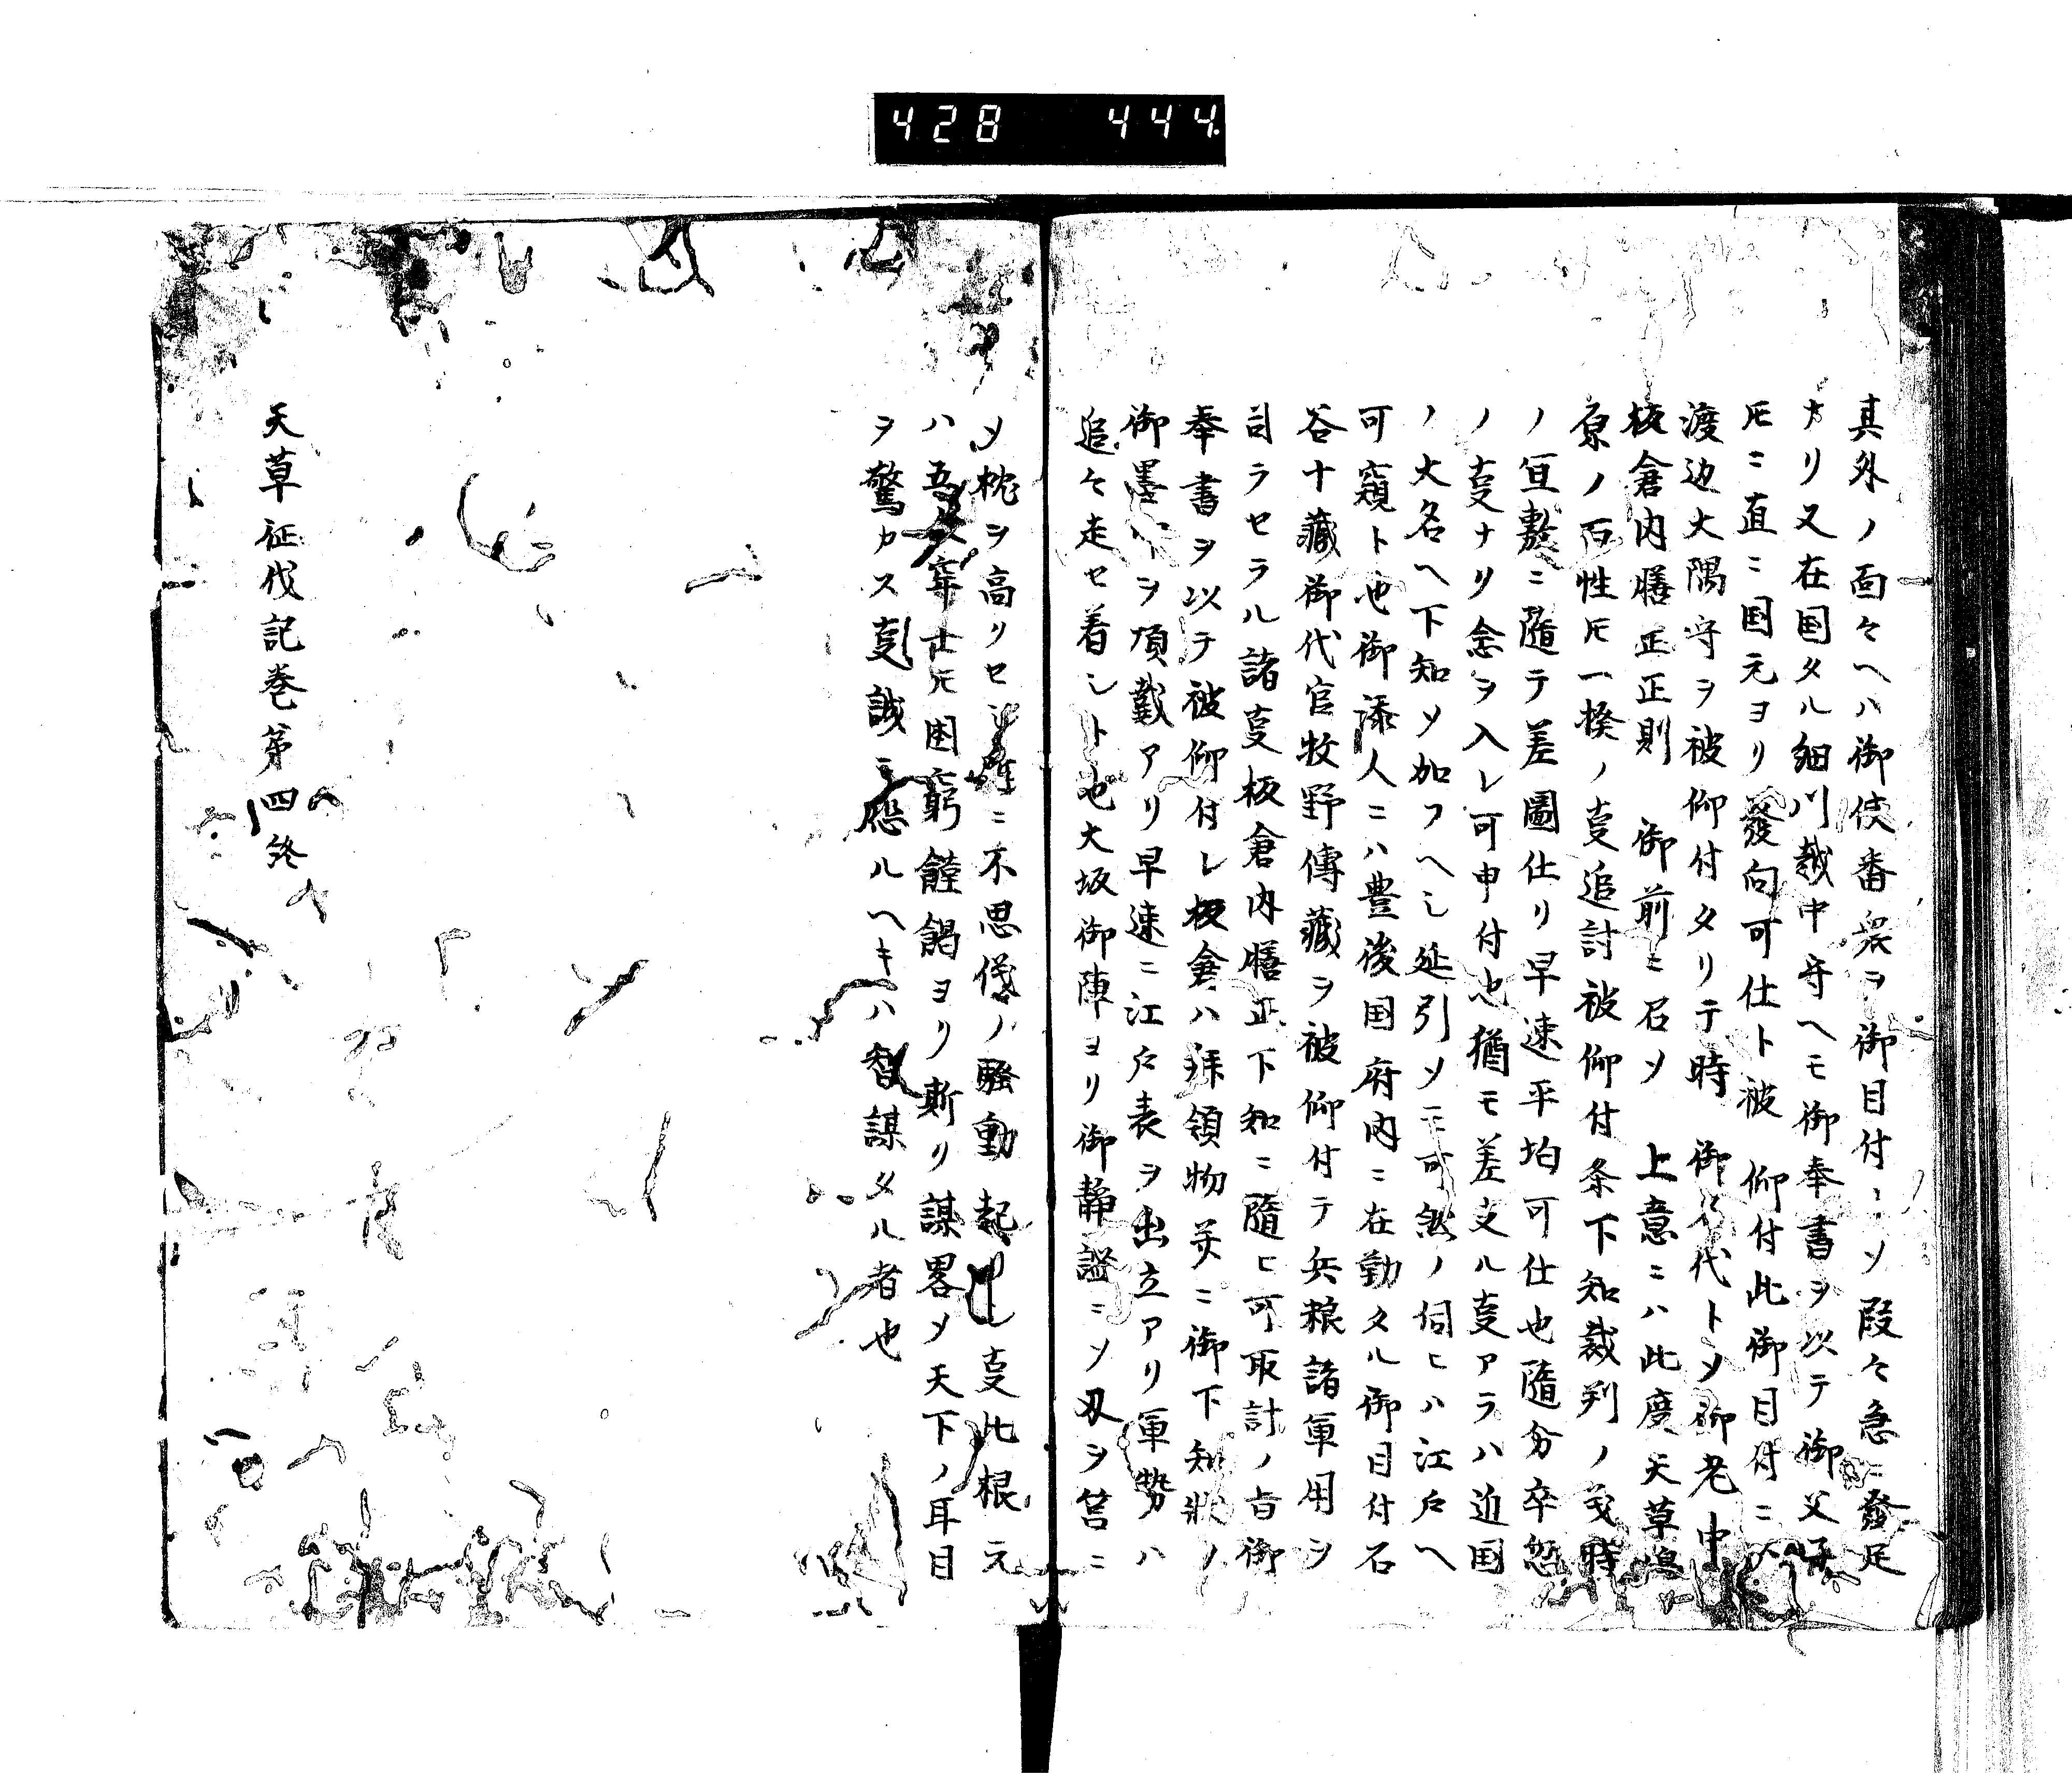 428 444
其外ノ面々ヘハ御使番衆ヲ御目付ニソ段々急ニ發足
ナリ又在国タル細川越中守ヘモ御奉書ヲ以テ御父子
𪜈ニ直ニ国元ヨリ發向可仕ト被 仰付此御目付ニハ
渡边大隅守ヲ被仰付タリテ時 御名代トソ御老中
板倉内膳正正則 御前ニ召ソ 上意ニハ此度天草嶋
原ノ百性𪜈一揆ノ叓追討被仰付条下知裁判ノ𠀋時
ノ宜敷ニ隨テ差圖仕リ早速平均可仕也隨分卒忽
ノ叓ナリ念ヲ入レ可申付也猶モ差支ル叓アラハ近国
ノ大名ヘ下知ソ加フヘシ延引ソモ可然ノ伺ヒハ江戸ヘ
可窺ト也御添人ニハ豊後国府内ニ在勤タル御目付石
谷十藏御代官牧野傳藏ヲ被仰付テ兵粮諸軍用ヲ
司ラセラル諸叓板倉内膳正下知ニ隨ヒ可取計ノ旨御
奉書ヲ以テ被仰付レ板倉ハ拜領物并ニ御下知状ノ
御墨付ヲ頂戴アリ早速ニ江戸表ヲ出立アリ軍勢ハ
追々走セ着シト也大坂御陣ヨリ御静謐ニソ刄ヲ筥ニ
ソ枕ヲ高リセシ雖ニ不思儀ノ騒動起リシ叓比根元
ハ五人ノ牢士𪜈困窮饉餲ヨリ斯リ謀畧ソ天下ノ耳目
ヲ驚カス叓誠ニ恐ルヘキハ智謀タル者也
天草征伐記巻第四終